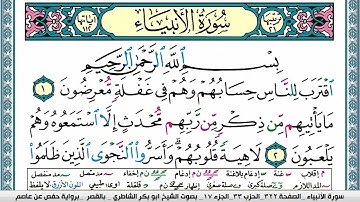 سُورَةُ الأَنبِيَاءِ
بِسْمِ ٱللَّهِ ٱلرَّحْمَٰنِ ٱلرَّحِيمِ
ٱقْتَرَبَ لِلنَّاسِ حِسَابُهُمْ وَهُمْ فِي غَفْلَةٍ مُّعْرِضُونَ ١
مَا يَأْتِيهِم مِّن ذِكْرٍ مِّن رَّبِّهِم مُّحْدَثٍ إِلَّا ٱسْتَمَعُوهُ وَهُمْ
يَلْعَبُونَ ٢ لَاهِيَةً قُلُوبُهُمْ وَأَسَرُّواْ ٱلنَّجْوَى ٱلَّذِينَ ظَلَمُواْ
سورة الأنبياء الصفحة ٣٢٢ الحزب ٣٣ الجزء ١٧ بصوت الشيخ ابو بكر الشاطري بالقصر برواية حفص عن عاصم